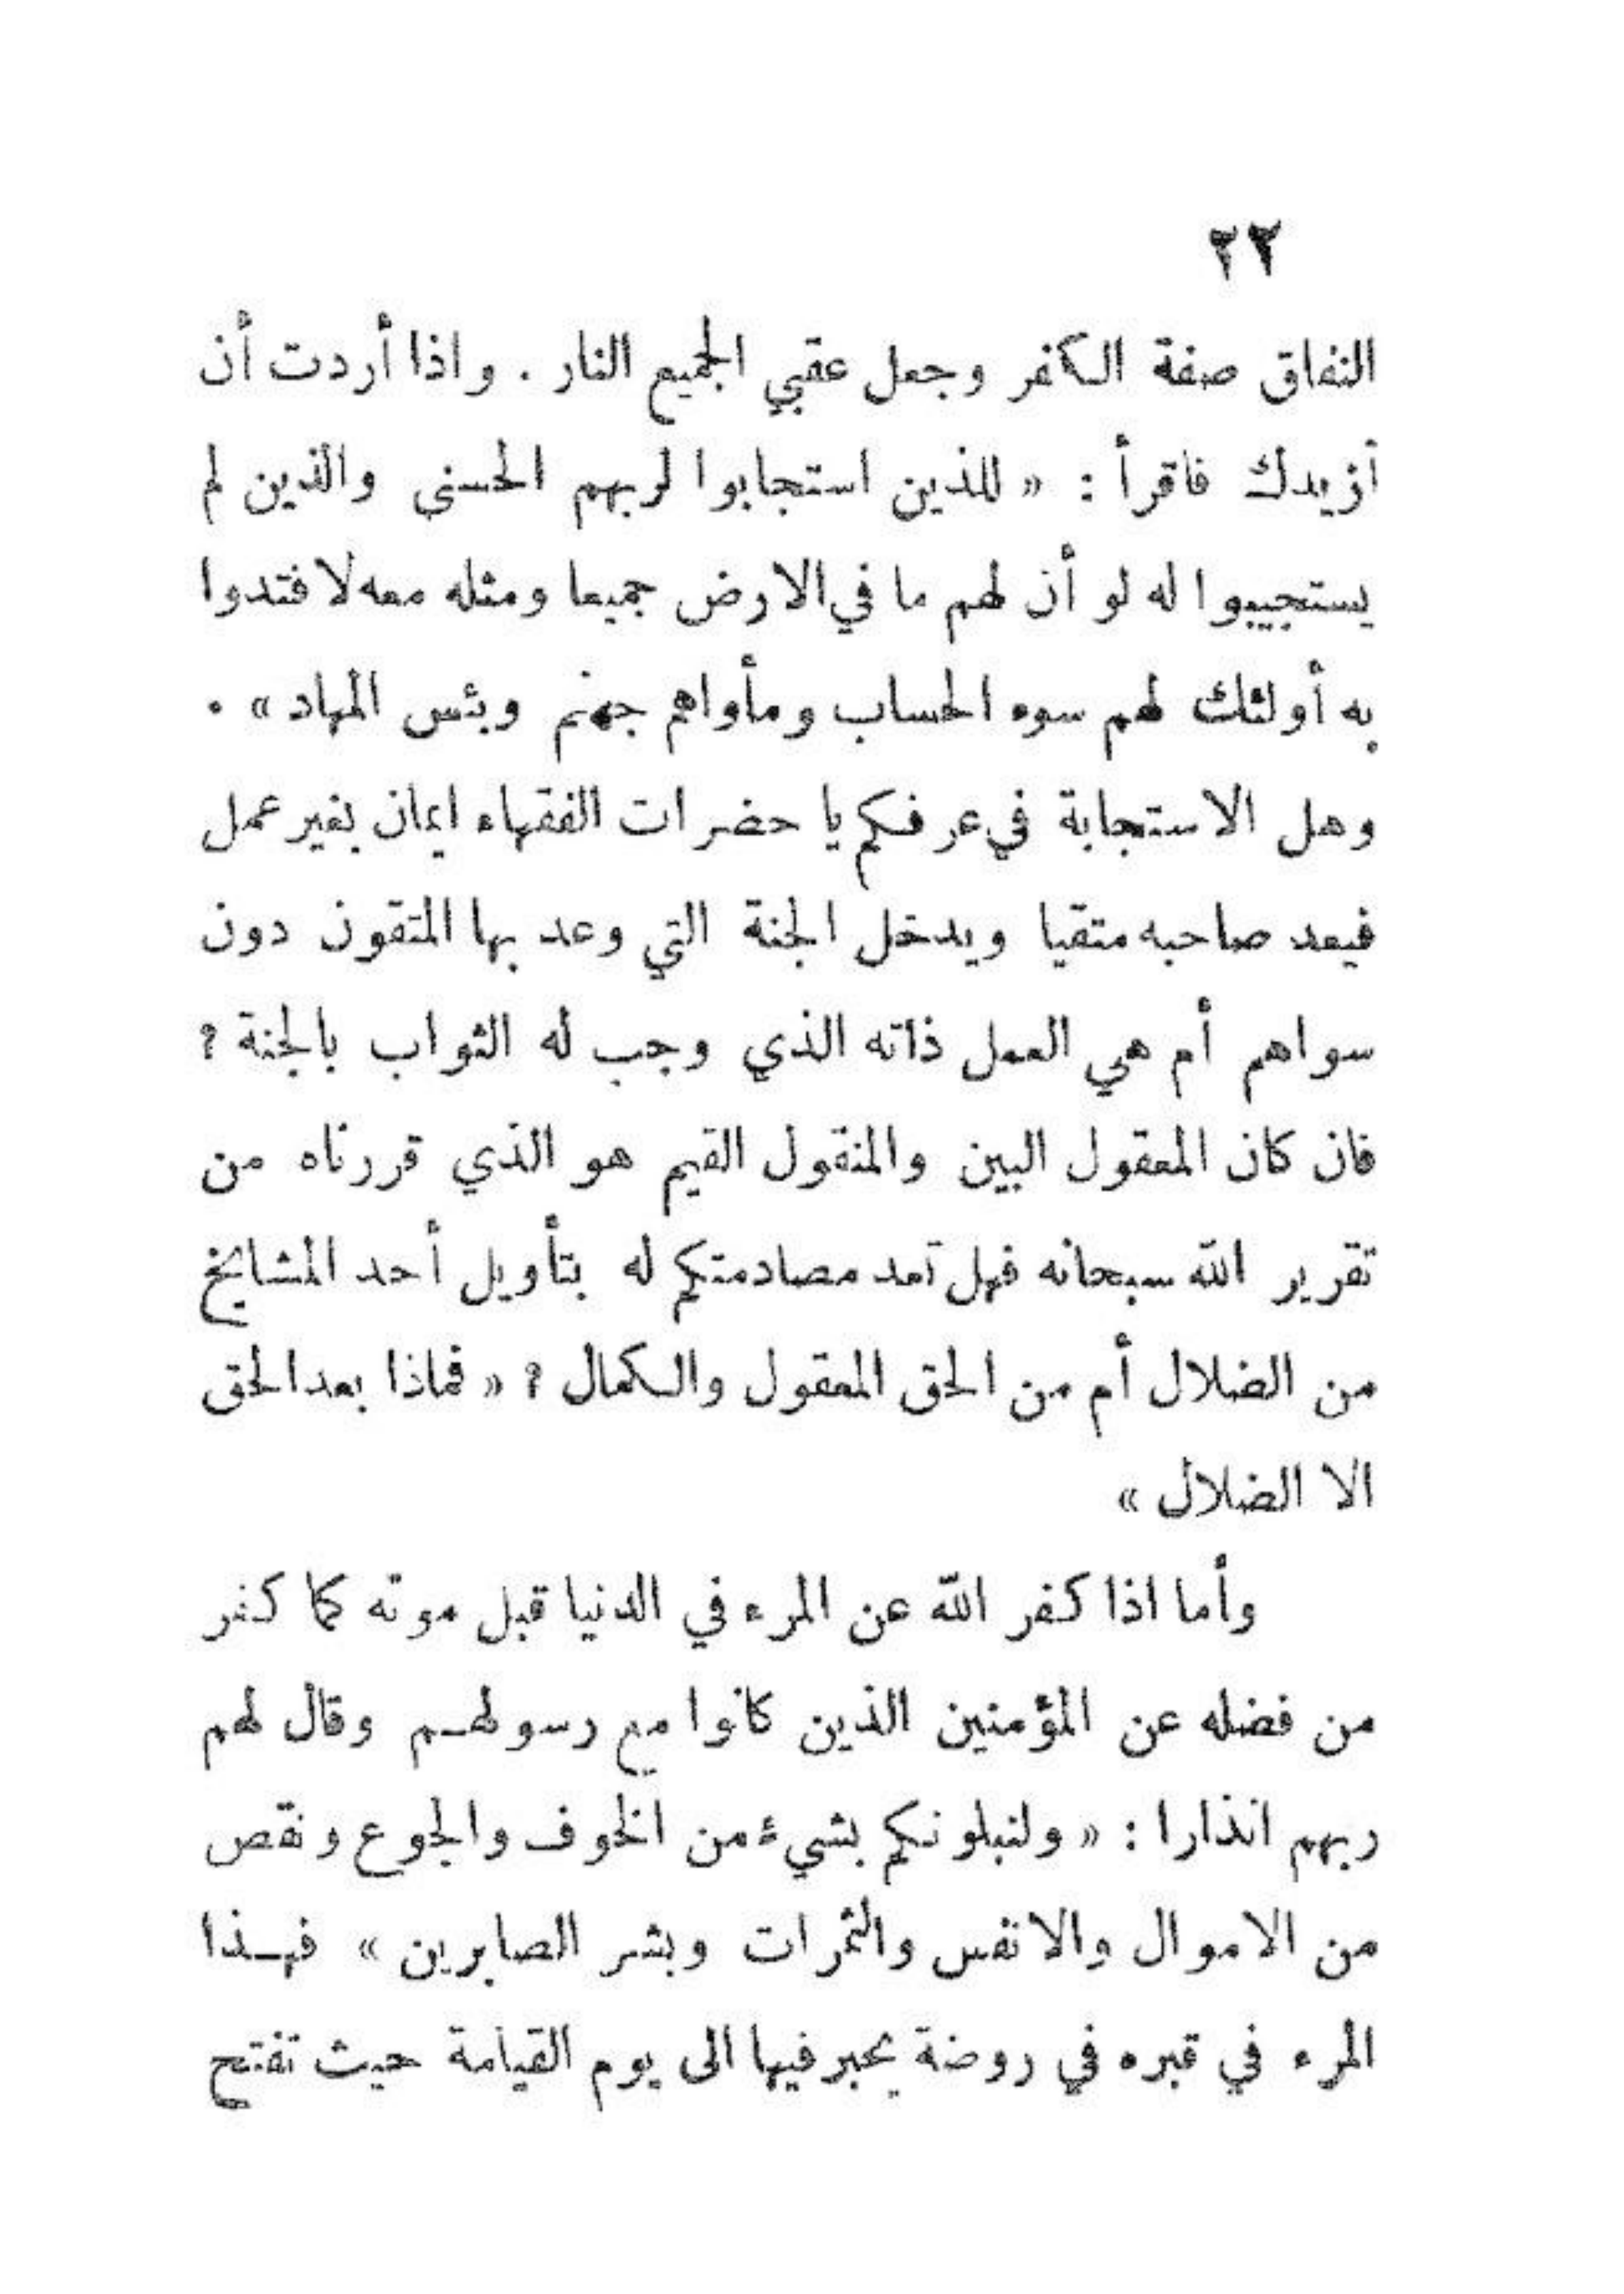 ٢٢
النفاق صفة الكفر وجعل عقبي الجميع النار . واذا أردت أن
أزيدك فاقرأ : « للذين استجابوا لربهم الحسنى والذين لم
يستجيبوا له لو أن لهم ما في الارض جميعا ومثله معه لافتدوا
به أولئك لهم سوء الحساب ومأواهم جهنم وبئس المهاد » .
وهل الاستجابة في عرفكم يا حضرات الفقهاء ايمان بغير عمل
فيعد صاحبه متقيا ويدخل الجنة التي وعد بها المتقون دون
سواهم أم هي العمل ذاته الذي وجب له الثواب بالجنة ؟
فان كان المعقول البين والمنقول القيم هو الذي قررناه من
تقرير الله سبحانه فهل تعد مصادمتكم له بتأويل أحد المشايخ
من الضلال أم من الحق المعقول والكمال ؟ « فماذا بعد الحق
الا الضلال »
وأما اذا كفر الله عن المرء في الدنيا قبل موته كما كفر
من فضله عن المؤمنين الذين كانوا مع رسولهـم وقال لهم
ربهم انذارا : « ولنبلونكم بشيء من الخوف والجوع ونقص
من الاموال والانفس والثمرات وبشر الصابرين » فهـذا
المرء في قبره في روضة يحبر فيها الى يوم القيامة حيث تفتح